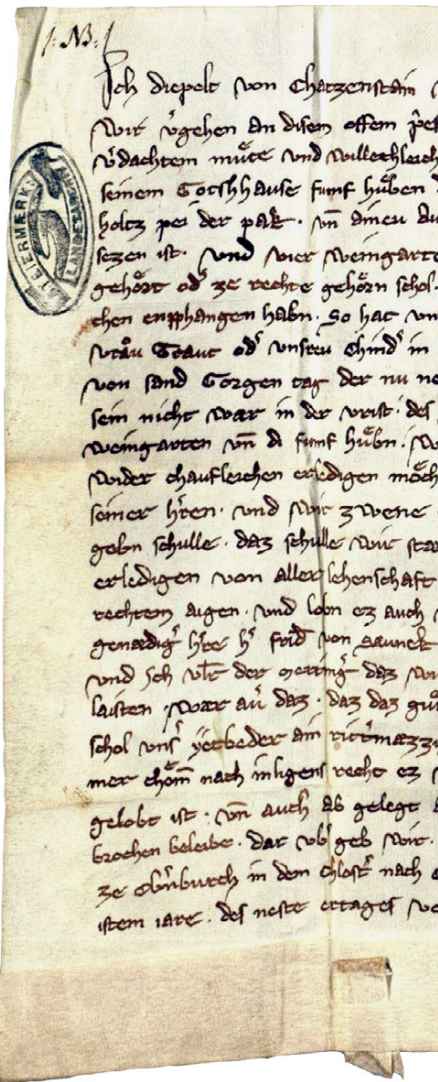 /: NB :/
Ich diepolt von Chatzenstain
Wir v̾gehen an disem offem
v̾dachtem mu̇te vnd willechleich
seinem Gotshhause funf hu̇ben
holtz pei der pak · vn̄ ainen
setzen ist · vnd vier weingarte
gehȯrt od̾ ze rechte gehȯrn schol ·
chen enpphangen habn · So hat vn
vraw Traut od̾ vnsreu chind̾ in
von sand Gorgen tag der nu ne
sein nicht war in der vrist · des
weingarten vn̄ di funf hu̇bn ·
wider chaufleichen erledigen mȯch
seiner h̾ren · vnd wir zwene
gebn schulle · daz schulle wir
erledigen von aller lehenschaft
rechtem aigen · vnd lobn ez auch
genaedig̾ h̾re h̾ frid̾ von Saunek
vnd Ich vlr̄ der daz
laisten · war au̾ daz · daz daz
schol vns̾ yetweder ain
mer chȯm̄ nach inligens recht ez
gelobt ist · vn̄ auch ab gelegt
brochen beleibe · dar vb̾ geb wir ·
ze Ob̾nburch in dem chlost̾ nach
istem iare · des neste ertages
STEIERMÆRK
LANDES